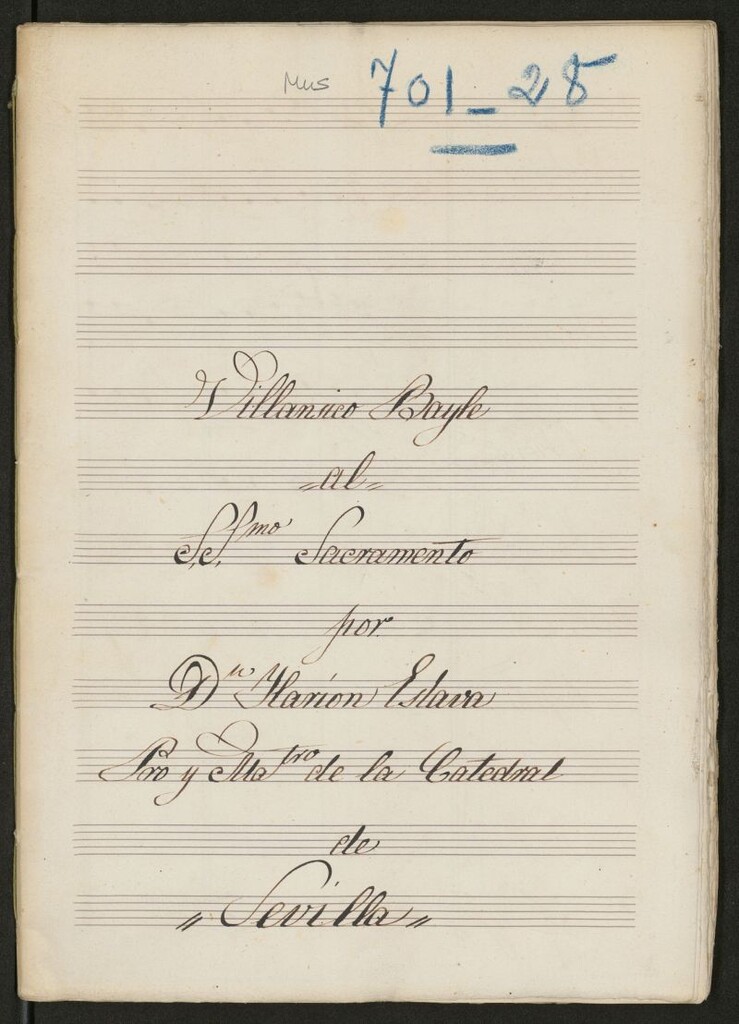 Mus 701-28
Villansico Bayle
=al=
SS.mo Sacramento
por
Dn Ylarion Eslava
Pro y Matro de la Catedral
de
"Sevilla"